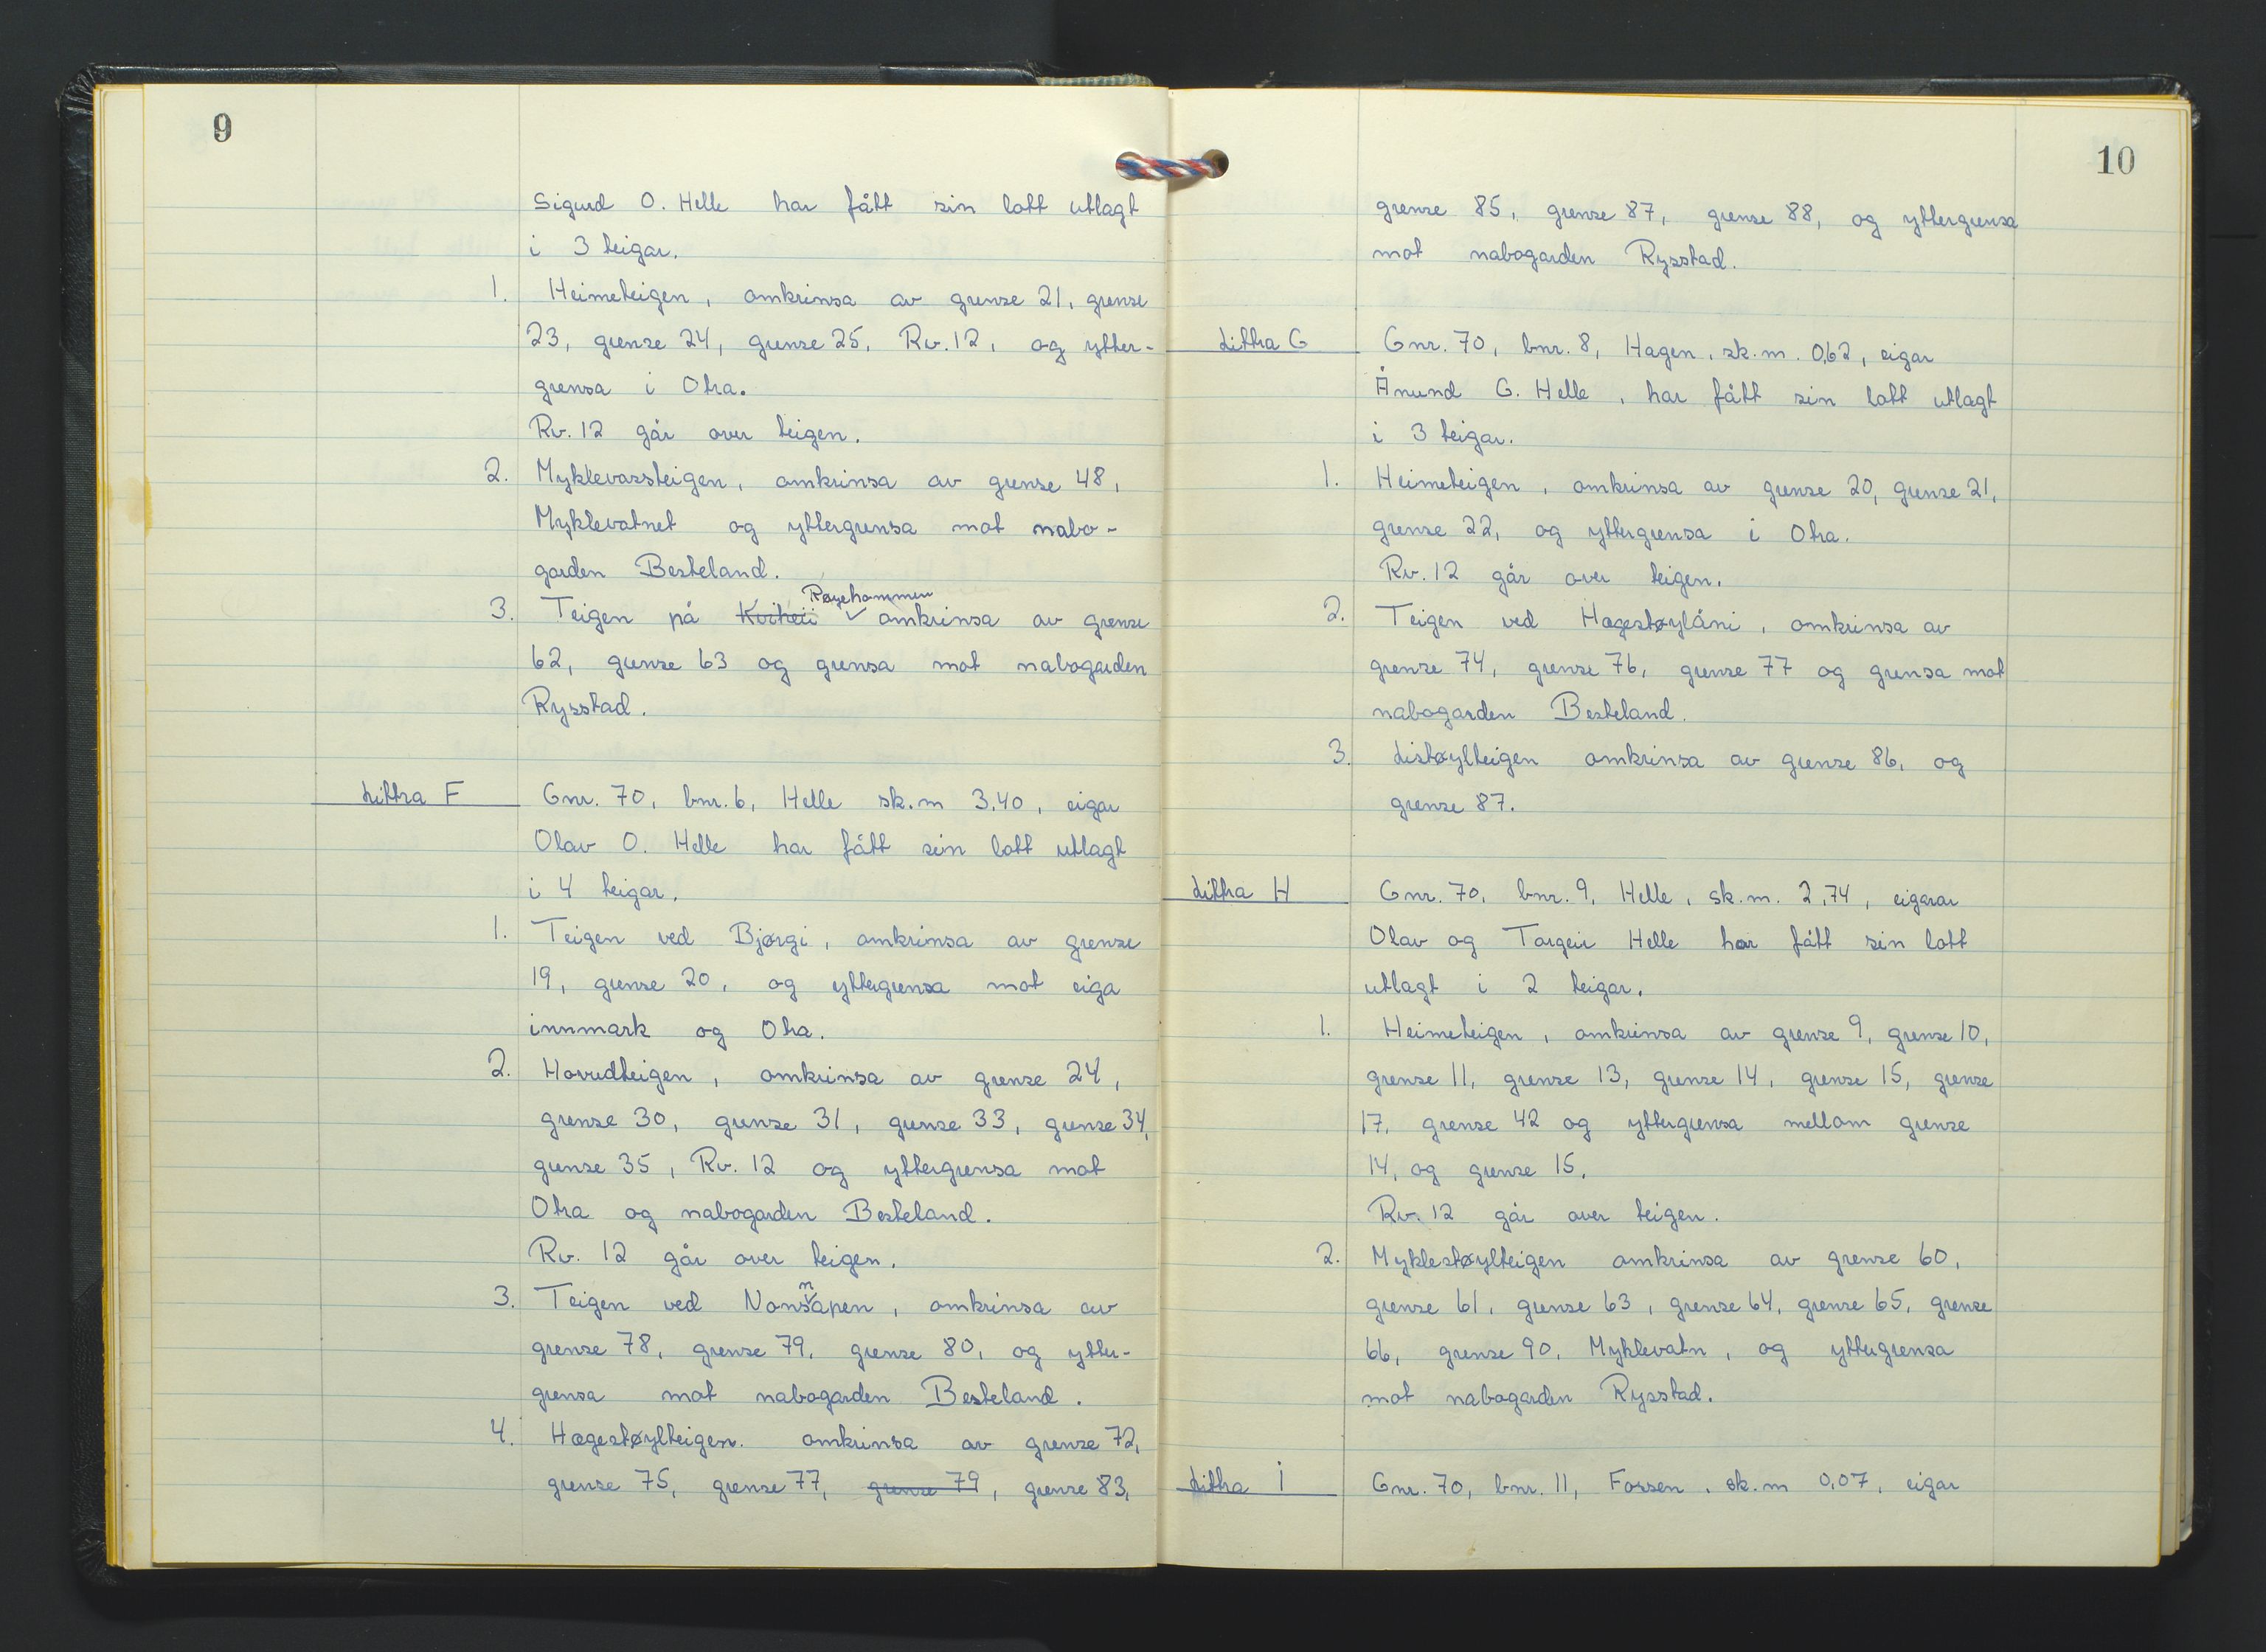 9
Sigurd O. Helle har fått sin lott utlagt
i 3 teigar.
1. Heimeteigen, omkrinsa av grense 21, grense
23, grense 24, grense 25, Rv. 12, og ytter-
grensa i Otra.
Rv. 12 går over teigen.
2. Myklevassteigen, omkrinsa av grense 48,
Myklevatnet og yttergrensa mot nabo-
garden Besteland.
Røyehommen
3. Teigen på Kvihei omkrinsa av grense
62, grense 63 og grensa mot nabogarden
Rysstad.
Littra F Gnr. 70, bnr. 6, Helle sk.m 3,40, eigar
Olav O. Helle har fått sin lott utlagt
i 4 teigar.
1. Teigen ved Bjørgi, omkrinsa av grense
19, grense 20, og yttergrensa mot eiga
innmark og Otra.
2. Hovudteigen, omkrinsa av grense 24,
grense 30, grense 31, grense 33, grense 34,
grense 35, Rv. 12 og yttergrensa mot
Otra og nabogarden Besteland.
Rv. 12 går over teigen.
3. Teigen ved Nonsnapen, omkrinsa av
grense 78, grense 79, grense 80, og ytter-
grensa mot nabogarden Besteland.
4. Hagestøylteigen. omkrinsa av grense 72,
grense 75, grense 77, grense 79, grense 83,
10
grense 85, grense 87, grense 88, og yttergrensa
mot nabogarden Rysstad.
Littra G Gnr. 70, bnr. 8, Hagen, sk.m. 0,62, eigar
Ånund G. Helle, har fått sin lott utlagt
i 3 teigar.
1. Heimeteigen, omkrinsa av grense 20, grense 21,
grense 22, og yttergrensa i Otra.
Rv. 12 går over teigen.
2. Teigen ved Hagestøylåni, omkrinsa av
grense 74, grense 76, grense 77 og grensa mot
nabogarden Besteland.
3. Listøylteigen omkrinsa av grense 86, og
grense 87.
Littra H Gnr. 70, bnr. 9, Helle, sk.m. 2,74, eigarar
Olav og Torgeir Helle har fått sin lott
utlagt i 2 teigar.
1. Heimeteigen, omkrinsa av grense 9, grense 10,
grense 11, grense 13, grense 14, grense 15, grense
17, grense 42 og yttergrensa mellom grense
14, og grense 15.
Rv. 12 går over teigen.
2. Myklestøylteigen omkrinsa av grense 60,
grense 61, grense 63, grense 64, grense 65, grense
66, grense 90, Myklevatn, og yttergrensa
mot nabogarden Rysstad.
Littra I Gnr. 70, bnr. 11, Forsen, sk.m 0,07, eigar